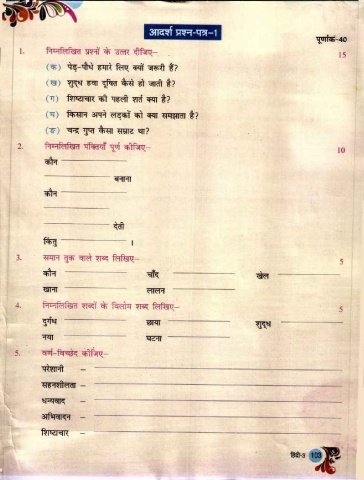 आदर्श प्रश्न-पत्र-1
पूर्णांक-40
1. निम्नलिखित प्रश्नों के उत्तर दीजिए- 15
(क) पेड़-पौधे हमारे लिए क्यों जरूरी हैं?
(ख) शुद्ध हवा दूषित कैसे हो जाती है?
(ग) शिष्टाचार की पहली शर्त क्या है?
(घ) किसान अपने लड़कों को क्या समझाता है?
(ङ) चन्द्र गुप्त कैसा सम्राट था?
2. निम्नलिखित पंक्तियाँ पूर्ण कीजिए- 10
कौन
बनाना
कौन
देती
किंतु ।
3. समान तुक वाले शब्द लिखिए- 5
कौन चाँद खेल
खाना लालन
4. निम्नलिखित शब्दों के विलोम शब्द लिखिए- 5
दुर्गंध छाया शुद्ध
नया घटना
5. वर्ण-विच्छेद कीजिए- 5
परेशानी -
सहनशीलता -
धन्यवाद -
अभिवादन -
शिष्टाचार -
हिंदी-3 103